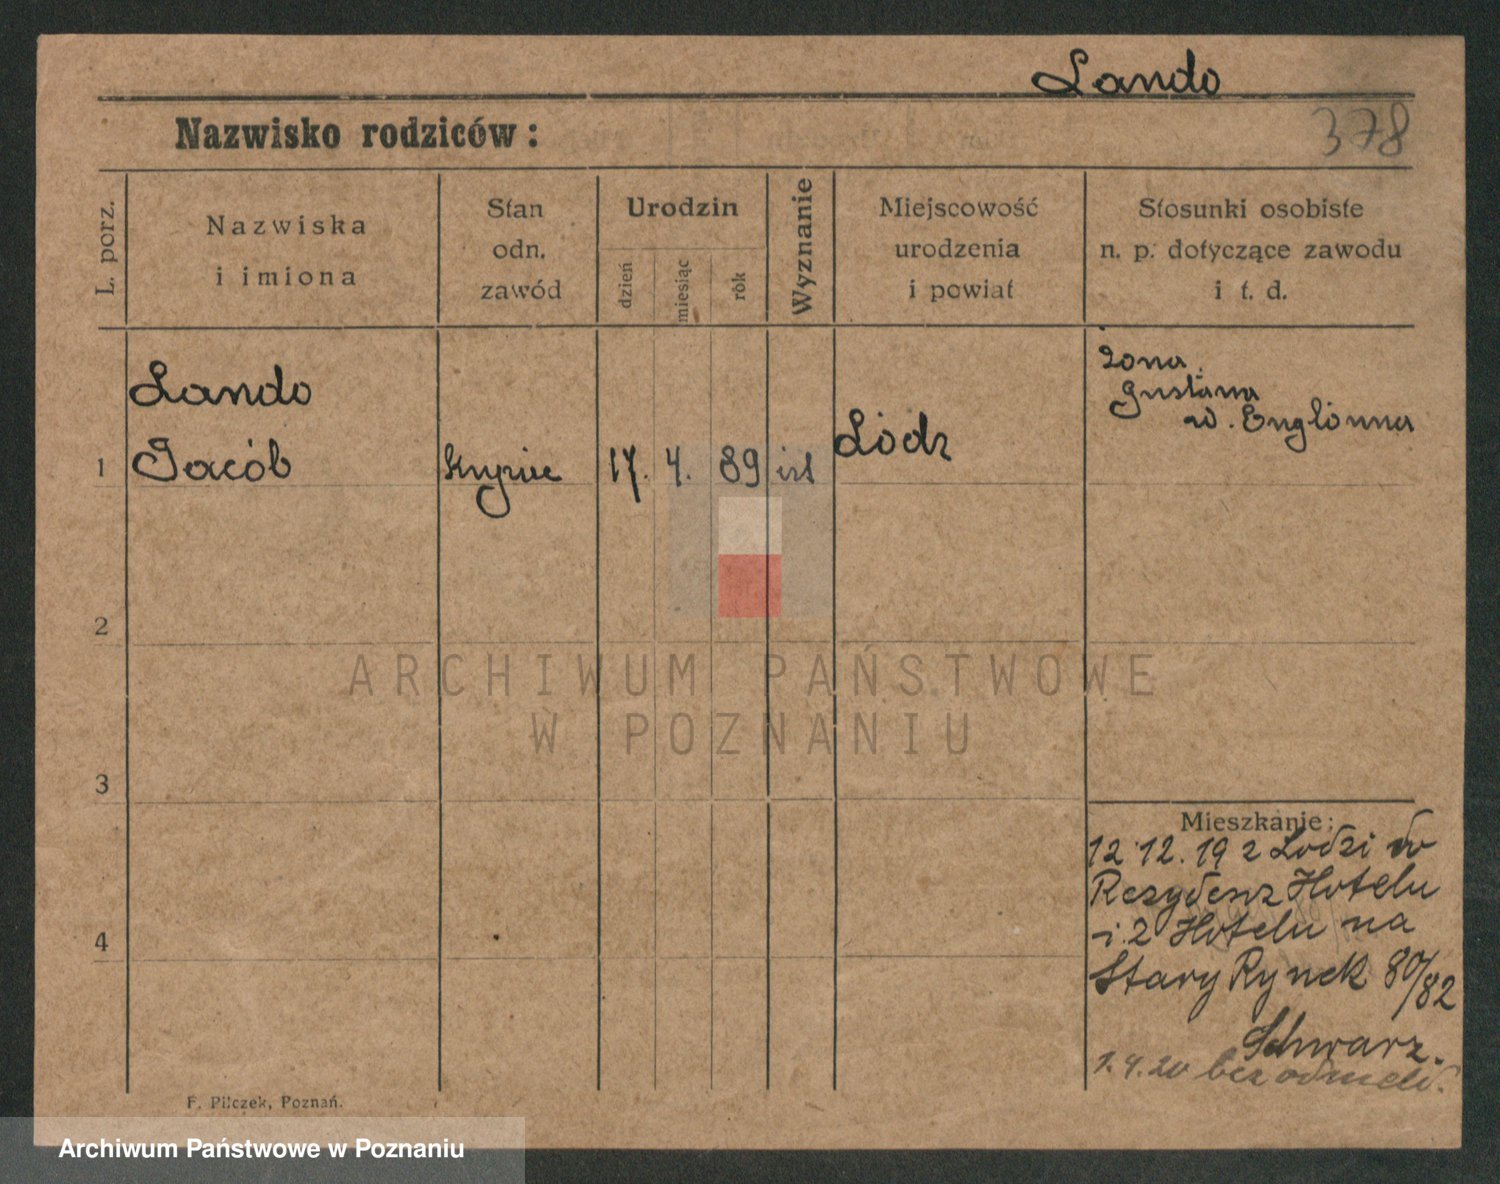 Lando
Nazwisko rodziców:
378
L. porz.
Nazwiska
i imiona
Stan
odn.
zawód
Urodzin
dzień
miesiąc
rok
Wyznanie
Miejscowość
urodzenia
i powiat
Stosunki osobiste
n. p. dotyczące zawodu
i t. d.
Lando
1 Jacób
Kupiec
17. 4. 89
Łódz
żona
Gustawa
2
3
4
ARCHIWUM PAŃSTWOWE
W POZNANIU
Mieszkanie:
12.12.19 z Lodzi do
Rezydenz Hotelu
i z Hotelu na
Stary Rynek 80/82
Schwarz.
1.4.20 bez odmeld.
F. Pilczek, Poznań.
Archiwum Państwowe w Poznaniu